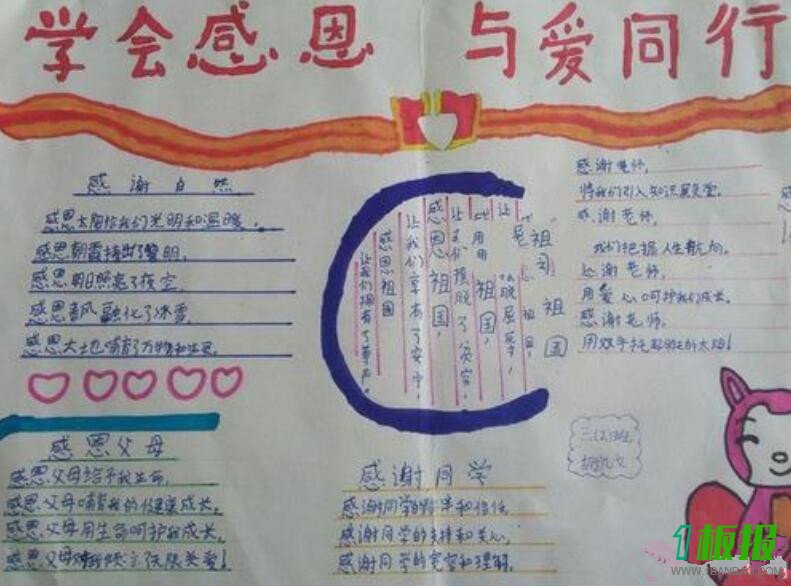 学会感恩 与爱同行
感谢自然
感恩太阳给我们光明和温暖。
感恩朝霞捧出了黎明,
感恩朝日照亮了夜空,
感恩春风融化了冰雪,
感恩大地哺育了万物和生灵。
感恩父母
感恩父母给予我生命,
感恩父母哺育我的健康成长,
感恩父母用生命呵护我成长,
感恩父母
无限关爱!
感恩祖国
让我们拥有了尊严。
感恩祖国,
让我们享有了安宁,
让我们摆脱了贫穷,
祖国,
摆脱屈辱,
祖国
感谢同学
感谢同学的 和信任,
感谢同学的支持和关心,
感谢同学的宽容和理解。
感谢老师,
将我们引入知识殿堂。
感谢老师,
我们把握人生航向。
感谢老师,
用爱心呵护我们成长。
感谢老师,
用双手托起 的太阳!
三(2)班
板报
WWW.1BANBAO.COM